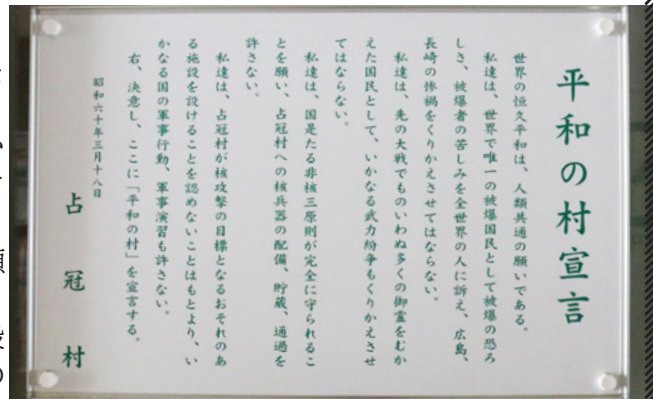 平和の村宣言
世界の恒久平和は、人類共通の願いである。
私達は、世界で唯一の被爆国民として被爆の恐ろ
しさ、被爆者の苦しみを全世界の人に訴え、広島、
長崎の惨禍をくりかえさせてはならない。
私達は、先の大戦でものいわぬ多くの御霊をむか
えた国民として、いかなる武力紛争もくりかえさせ
てはならない。
私達は、国是たる非核三原則が完全に守られるこ
とを願い、占冠村への核兵器の配備、貯蔵、通過を
許さない。
私達は、占冠村が核攻撃の目標となるおそれのあ
る施設を設けることを認めないことはもとより、い
かなる国の軍事行動、軍事演習も許さない。
右、決意し、ここに「平和の村」を宣言する。
昭和六十年三月十八日
占冠村